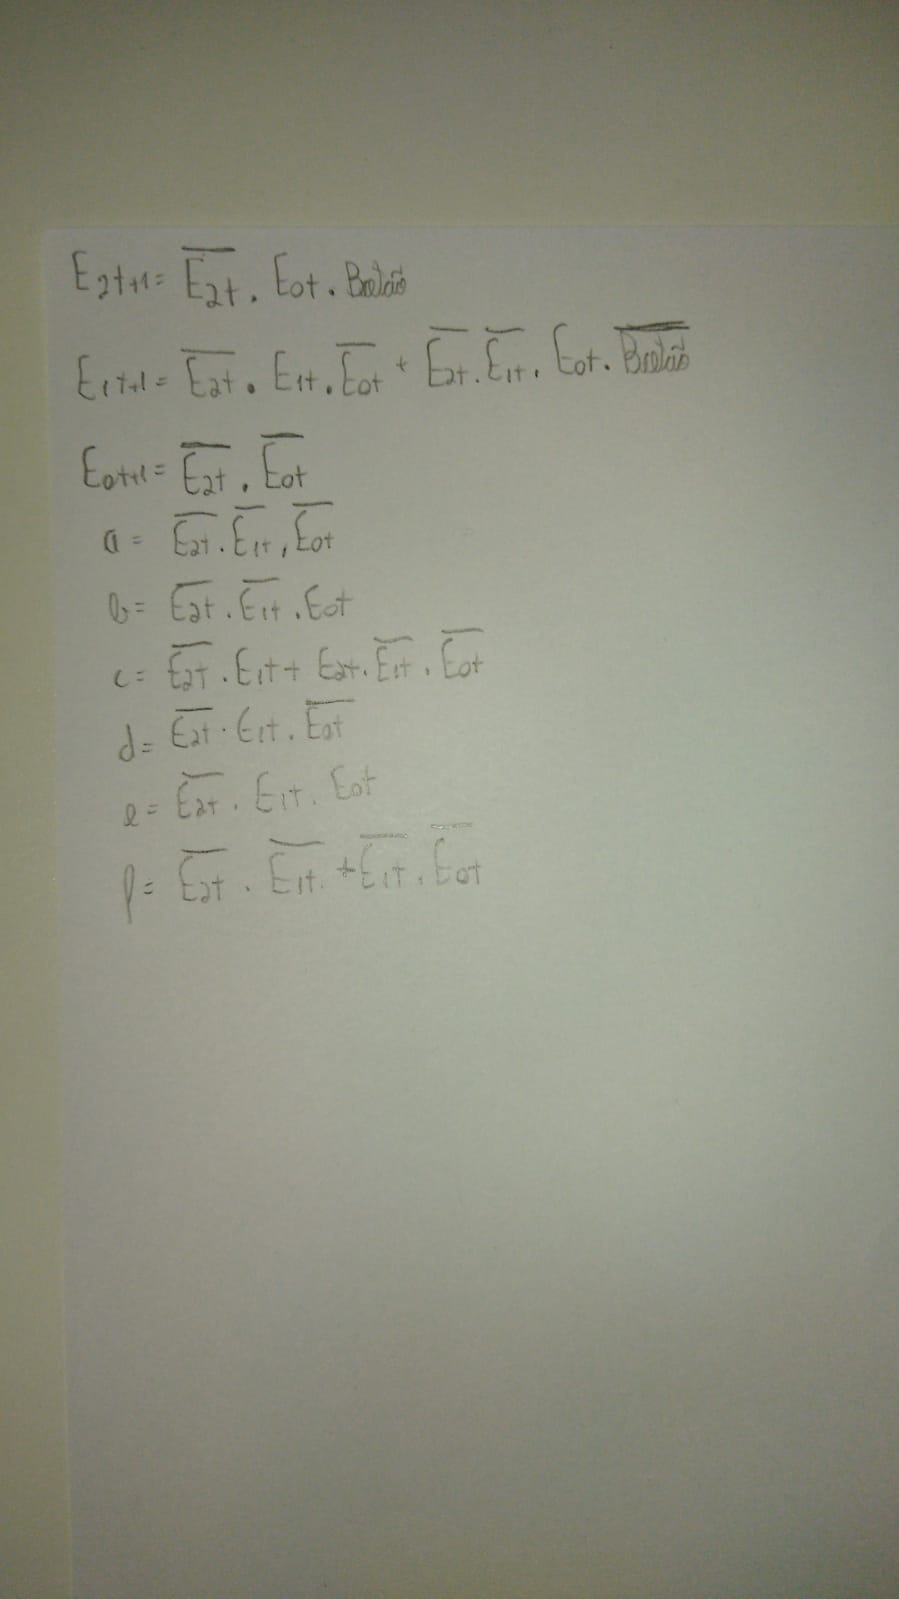 E2t+1 = E̅2̅t̅ . E0t . Botão
E1t+1 = E̅2̅t̅ . E1t . E̅0̅t̅ + E̅2̅t̅ . E̅1̅t̅ . E0t . B̅o̅t̅ã̅o̅
E0t+1 = E̅2̅t̅ . E̅0̅t̅
a = E̅2̅t̅ . E̅1̅t̅ . E̅0̅t̅
b = E̅2̅t̅ . E̅1̅t̅ . E0t
c = E̅2̅t̅ . E1t + E2t . E̅1̅t̅ . E̅0̅t̅
d = E̅2̅t̅ . E1t . E̅0̅t̅
e = E̅2̅t̅ . E1t . E0t
f = E̅2̅t̅ . E̅1̅t̅ . + E̅1̅t̅ . E̅0̅t̅